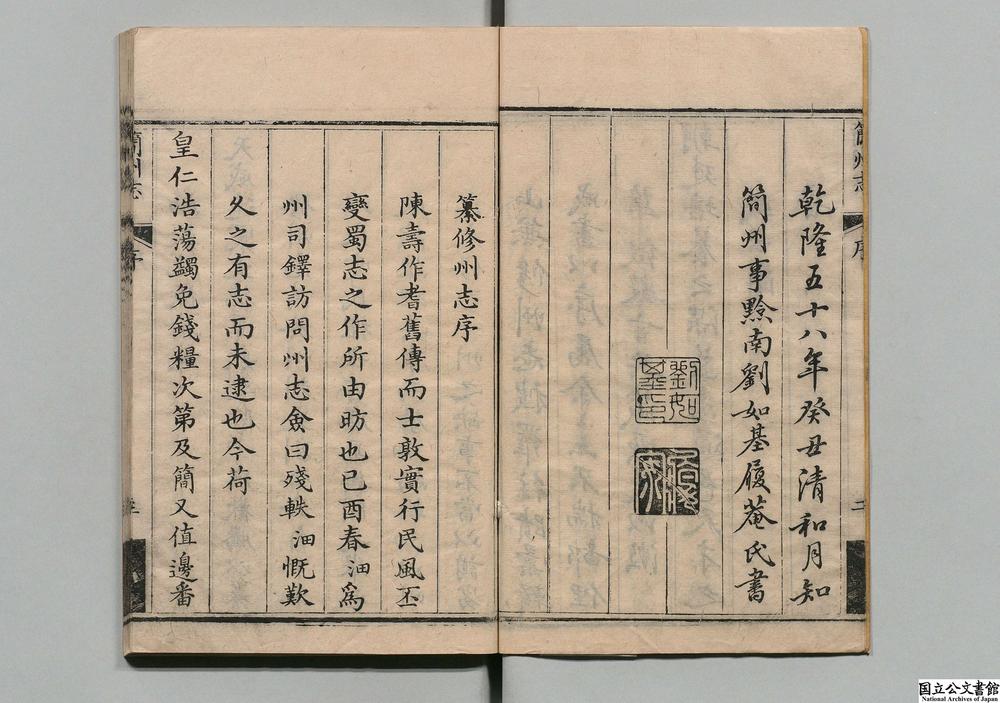 乾隆五十八年癸丑清和月知
簡州事黔南劉如基履菴氏書
劉如基印
纂修州志序
陳壽作耆舊傳而士敦實行民風丕
變蜀志之作所由昉也已酉春沺爲
州司鐸訪問州志僉曰殘軼沺慨歎
久之有志而未逮也今荷
皇仁浩蕩蠲免錢糧次第及簡又值邊番
簡州志
序
国立公文書館
National Archives of Japan